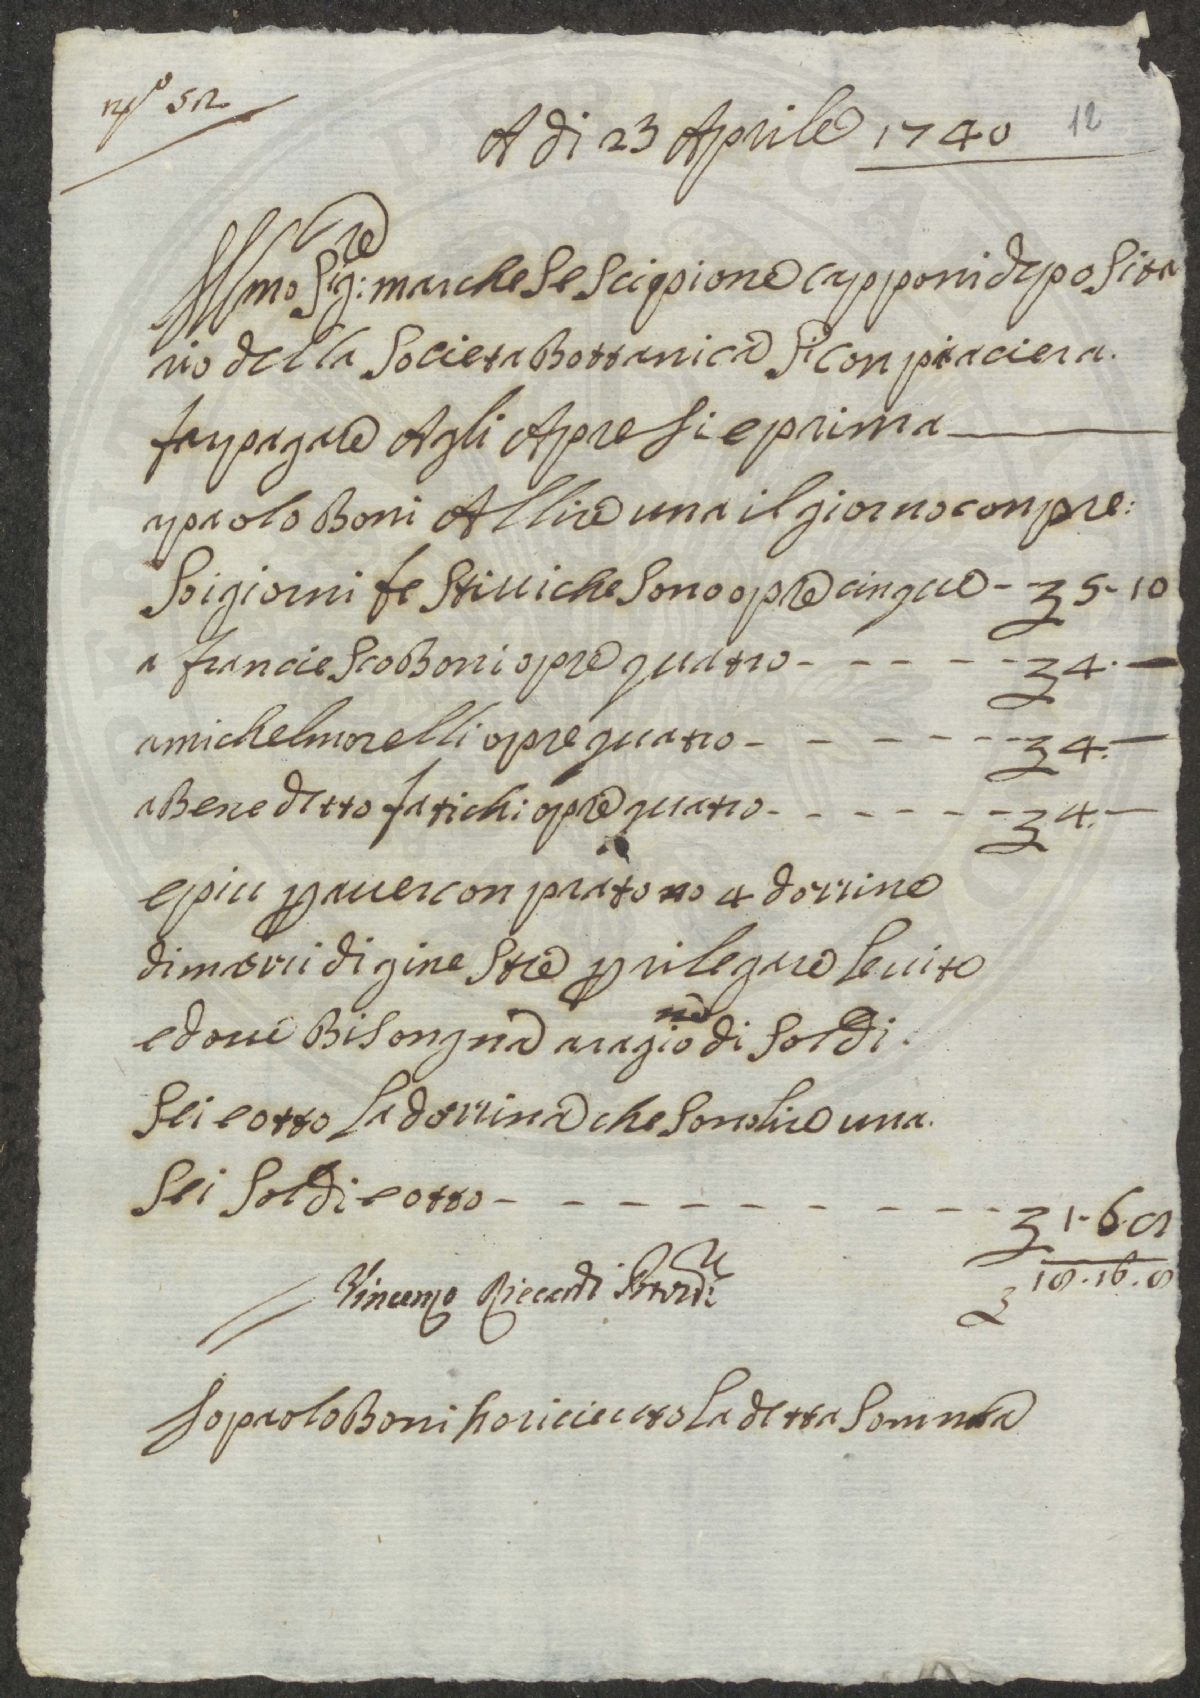 No 52
A di 23 Aprile 1740 12
Illmo Sigre: marchese Scipione Capponi deposita
rio della Societa Bottanica Si Conpiaciera.
far pagare Agli Apresi e prima
a paolo Boni A llire una il giorno conpre:
so i giorni festiui che sono opre cinque - ₤ 5 - 10
a franciesco Boni opre quatro - - - - - ₤ 4. —
a michel morelli opre quatro - - - - - - ₤ 4. —
a Benedetto fatichi opre quatro - - - - - - ₤ 4. —
e piu p auer conprato no 4 dozzine
di mazzi di ginestre p rilegare le uite
e doue Bisongna a ragione di Soldi.
Sei e otto la dozzina che sono lire una.
Sei Soldi e otto - - - - - - - - - ₤ 1 - 6. 8
₤ 18. 16. 8
Vincenzo Riccardi
Io paolo Boni ho riceuto la detta Somma